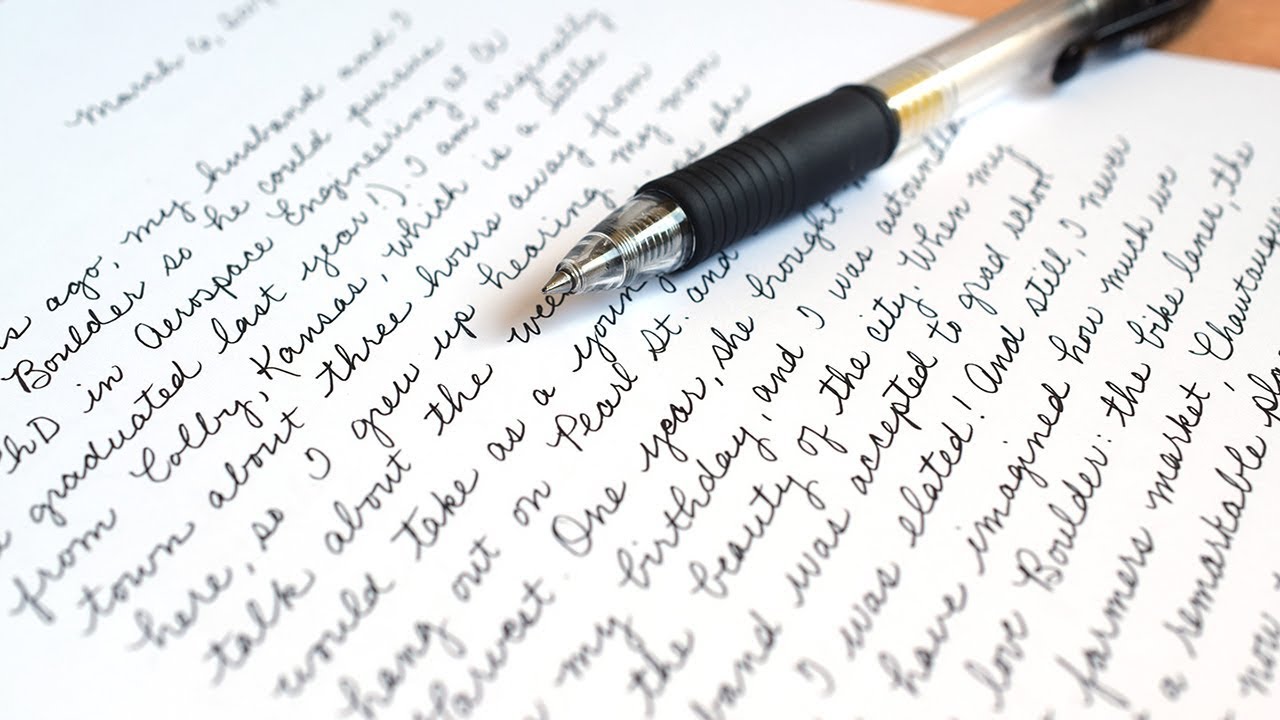 March 6,
ago, my husband and I
Boulder so he could pursue
PhD in Aerospace Engineering at
graduated last year!). I am originally
from Colby, Kansas, which is a little
town about three hours away from
here, so I grew up hearing my mom
talk about the she
would take as a young
hang out on Pearl St. and
Harvest. One year, she brought
my birthday, and I was
the beauty of the city. When my
band was accepted to grad school
I was elated! And still, I never
have imagined how much we
love Boulder: the bike lanes, the
farmers market,
a remarkable
now